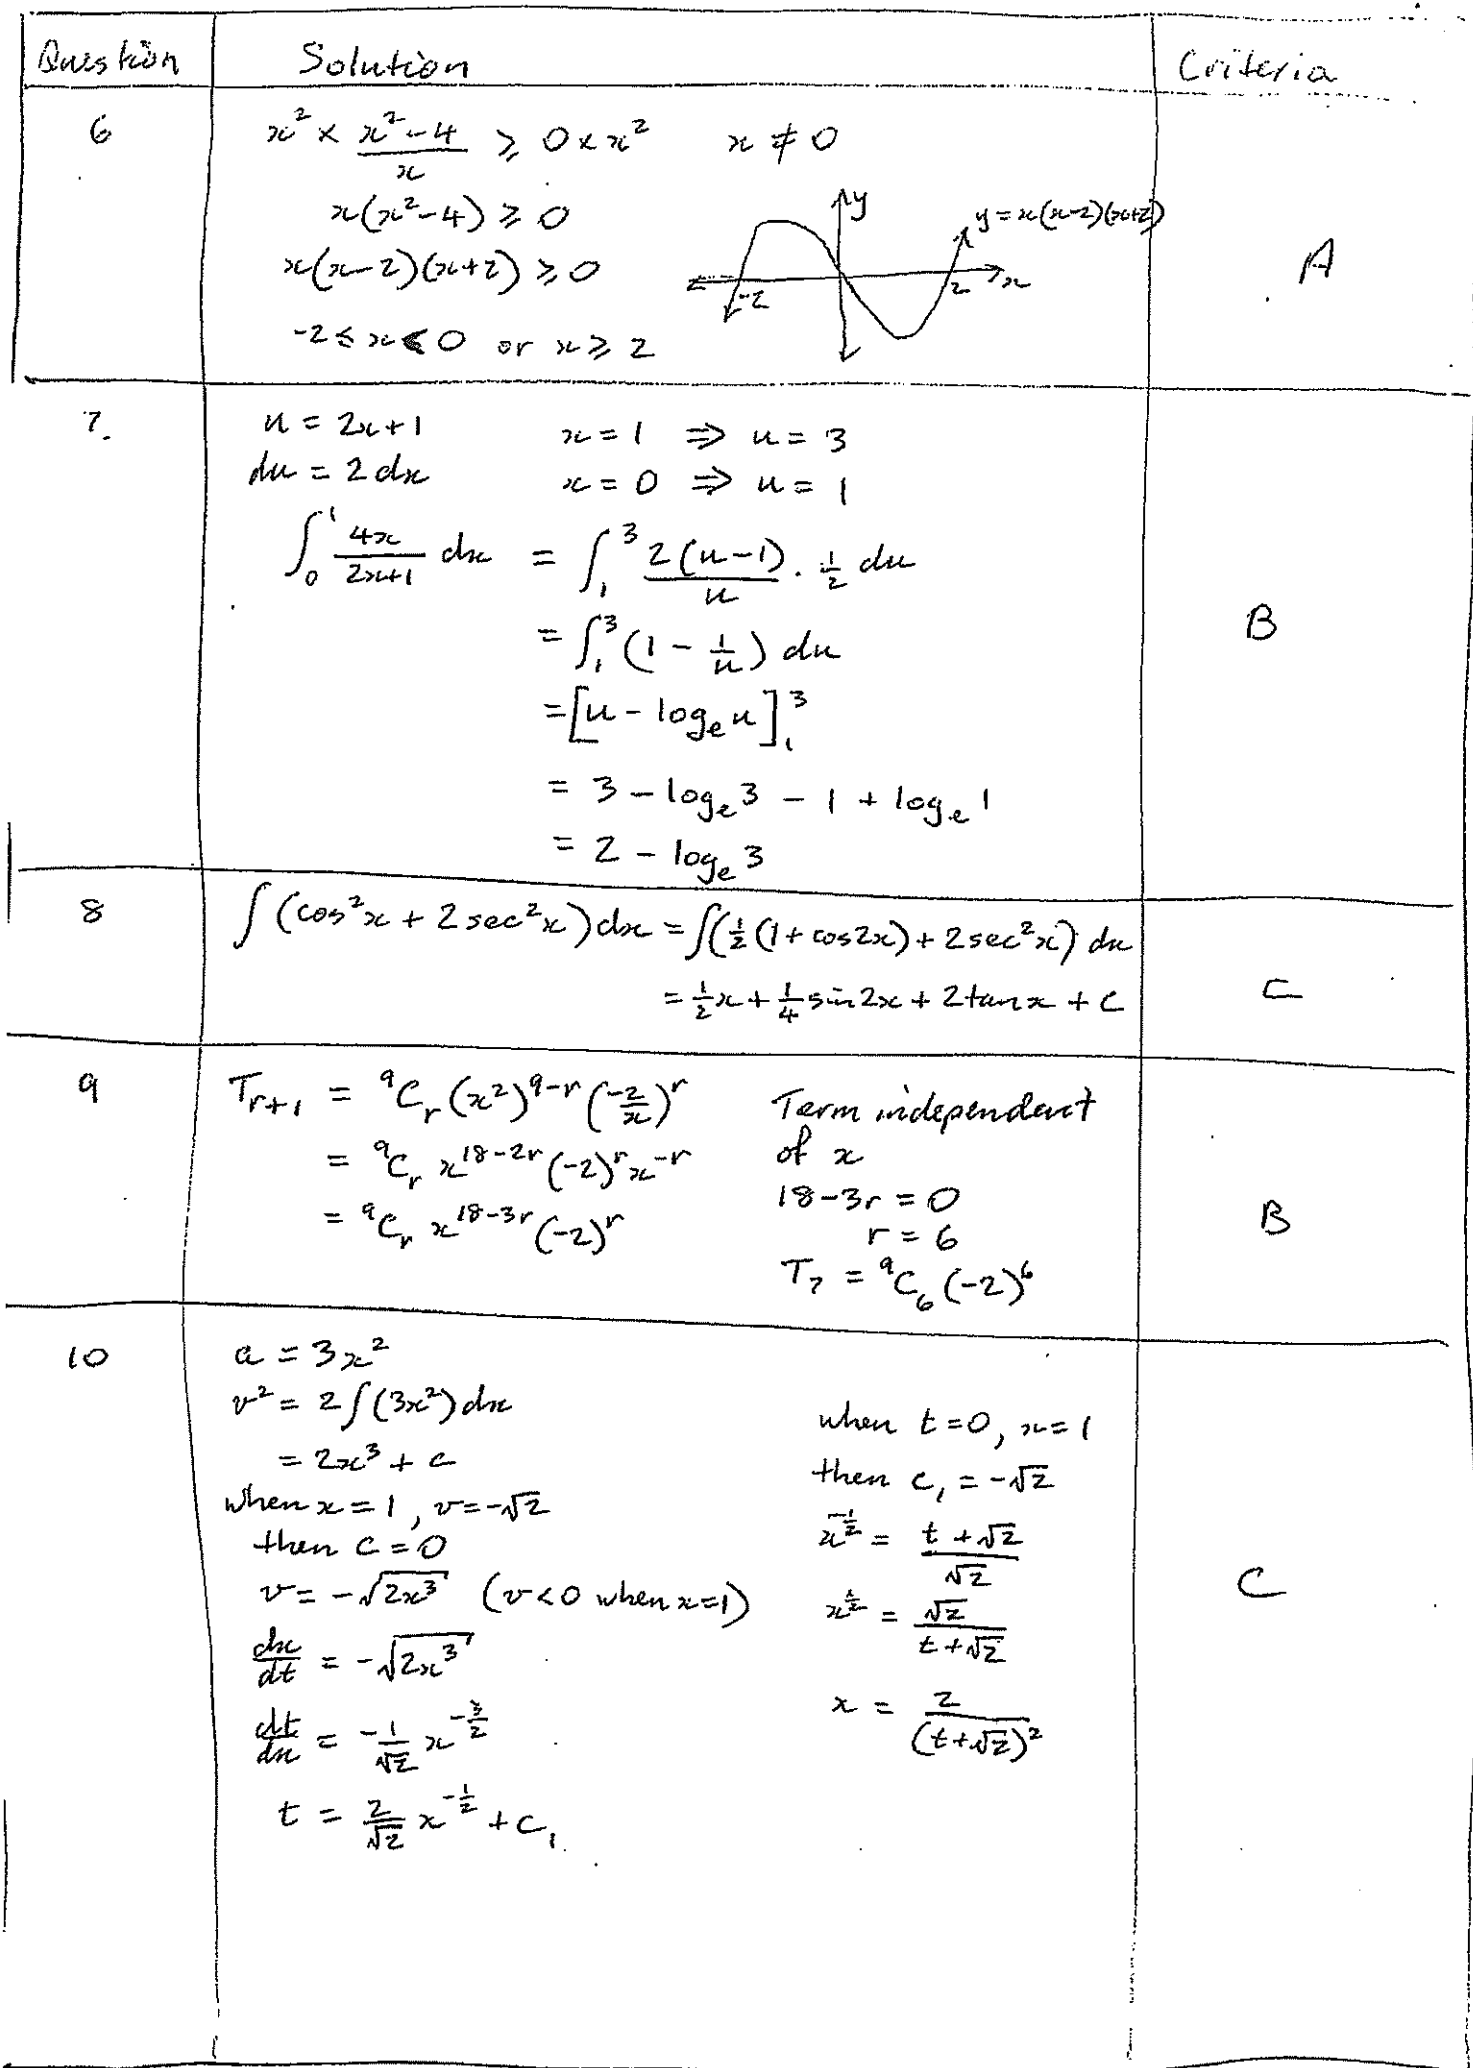 Question Solution Criteria
6 x² × (x²-4)/x ≥ 0 × x² x ≠ 0
x(x²-4) ≥ 0
x(x-2)(x+2) ≥ 0
-2 ≤ x < 0 or x ≥ 2
y
y = x(x-2)(x+2)
-2 2 x
A
7. u = 2x+1 x = 1 ⇒ u = 3
du = 2 dx x = 0 ⇒ u = 1
∫₀¹ 4x/(2x+1) dx = ∫₁³ 2(u-1)/u · ½ du
= ∫₁³ (1 - 1/u) du
= [u - logₑ u]₁³
= 3 - logₑ 3 - 1 + logₑ 1
= 2 - logₑ 3
B
8 ∫(cos²x + 2 sec²x) dx = ∫(½(1 + cos2x) + 2sec²x) dx
= ½x + ¼ sin 2x + 2 tan x + c
C
9 Tᵣ₊₁ = ⁹Cᵣ (x²)⁹⁻ʳ (-2/x)ʳ
= ⁹Cᵣ x¹⁸⁻²ʳ (-2)ʳ x⁻ʳ
= ⁹Cᵣ x¹⁸⁻³ʳ (-2)ʳ
Term independent
of x
18-3r = 0
r = 6
T₇ = ⁹C₆ (-2)⁶
B
10 a = 3x²
v² = 2∫(3x²) dx
= 2x³ + c
when x = 1, v = -√2
then c = 0
v = -√(2x³) (v<0 when x=1)
dx/dt = -√(2x³)
dt/dx = -1/√2 x^(-3/2)
t = 2/√2 x^(-1/2) + c₁
when t = 0, x = 1
then c₁ = -√2
x^(-1/2) = (t + √2)/√2
x^(1/2) = √2/(t + √2)
x = 2/(t+√2)²
C